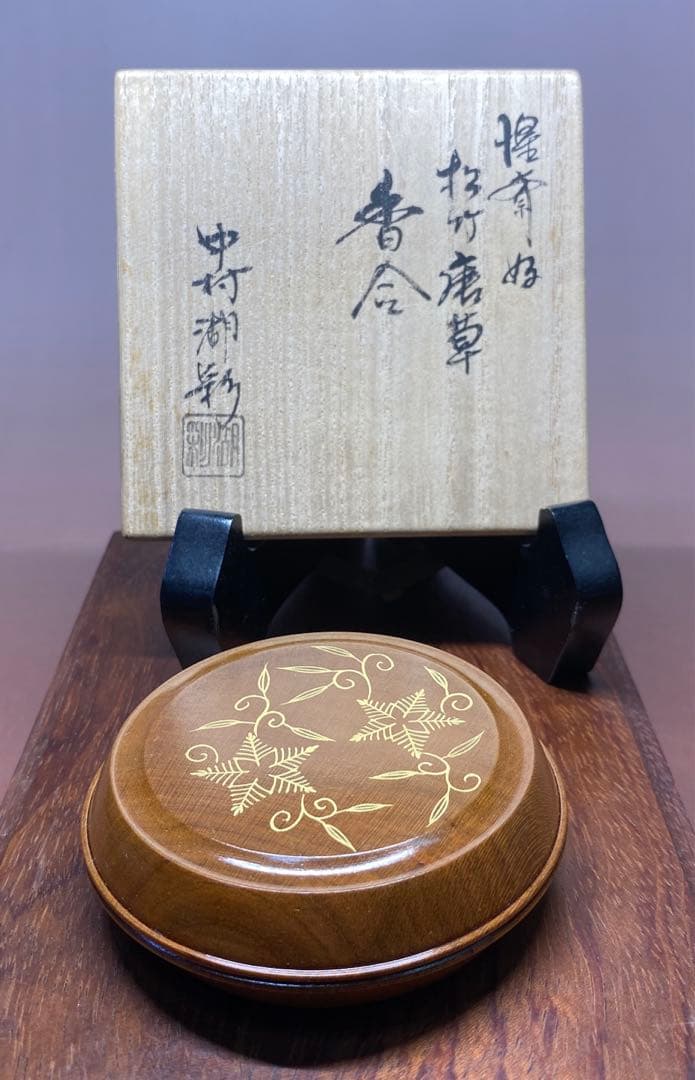 惺斎好
松竹唐草
香合
中村湖彩
湖彩